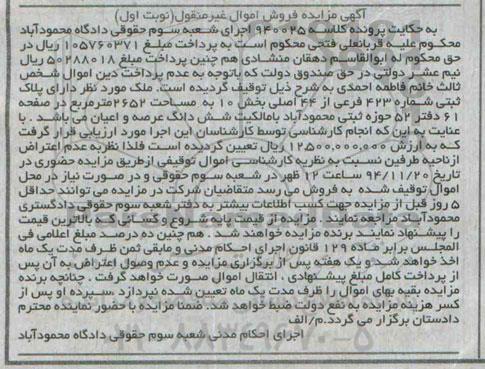 آگهی مزایده فروش اموال غیرمنقول(نوبت اول)
به حکایت پرونده کلاسه ۹۴۰۰۲۵ اجرای شعبه سوم حقوقی دادگاه محمودآباد
محکوم علیه قربانعلی فتحی محکوم است به پرداخت مبلغ ۱۰۵۷۶۰۳۷۱ ریال در
حق محکوم له ابوالقاسم دهقان منشادی هم چنین پرداخت مبلغ ۵۰۲۸۸۰۱۸ ریال
نیم عشر دولتی در حق صندوق دولت که باتوجه به عدم پرداخت دین اموال شخص
ثالث خانم فاطمه احمدی به شرح ذیل توقیف گردیده است. ملک مورد نظر دارای پلاک
ثبتی شماره ۴۲۳ فرعی از ۴۴ اصلی بخش ۱۰ به مساحت ۲۶۵۲مترمربع در صفحه
۶۱ دفتر ۵۲ حوزه ثبتی محمودآباد بامالکیت شش دانگ عرصه و اعیان می باشد . با
عنایت به این که انجام کارشناسی توسط کارشناسان این اجرا مورد ارزیابی قرار گرفت
که به ارزش ۱۲۵۰۰,۰۰۰,۰۰۰ ریال تعیین گردیده است فلذا نظربه عدم اعتراض
ازناحیه طرفین نسبت به نظریه کارشناسی اموال توقیفی ازطریق مزایده حضوری در
تاریخ ۹۴/۱۱/۲۰ ساعت ۱۲ ظهر در شعبه سوم حقوقی و در صورت نیاز در محل
اموال توقیف شده به فروش می رسد متقاضیان شرکت در مزایده می توانند حداقل
۵ روز قبل از مزایده جهت کسب اطلاعات بیشتر به دفتر شعبه سوم حقوقی دادگستری
محمودآباد مراجعه نمایند . مزایده از قیمت پایه شروع و کسانی که بالاترین قیمت
را پیشنهاد نمایند برنده مزایده خواهند شد . هم چنین ده درصد مبلغ اعلامی فی
المجلس برابر ماده ۱۲۹ قانون اجرای احکام مدنی و مابقی ثمن ظرف مدت یک ماه
اخذ خواهد شد و یک هفته پس از برگزاری مزایده و عدم وصول اعتراض به آن پس
از پرداخت کامل مبلغ پیشنهادی ، انتقال اموال صورت خواهد گرفت . چنانچه برنده
مزایده بقیه بهای اموال را ظرف مدت یک ماه تعیین شده نپردازد .سپرده او پس از
کسر هزینه مزایده به نفع دولت ضبط خواهد شد. ضمنا مزایده با حضور نماینده محترم
دادستان برگزار می گردد.م/الف
اجرای احکام مدنی شعبه سوم حقوقی دادگاه محمودآباد